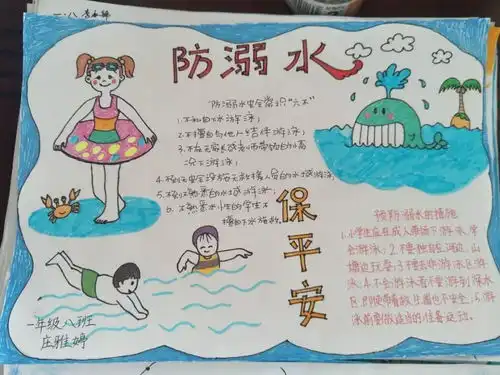 防溺水
"防溺水安全常识"六不"
1.不私自下水游泳;
2.不擅自与他人结伴游泳;
3.不在无家长或老师带领的情
况下游泳;
4.不到无安全设施无救援人员的水域游泳;
5.不到不熟悉的水域游泳;
6.不熟悉水性的学生不
擅自下水施救
保平安
预防溺水的措施
1.小学生应在成人带领下游泳,学
会游泳;2.不要独自在河边、山
塘边玩耍;3.不去非游泳区游
泳;4.不会游泳者不要游到深水
区,即使带着救生圈也不安全;5.游
泳前要做适当的准备运动。
一年级八班
庄雅婷